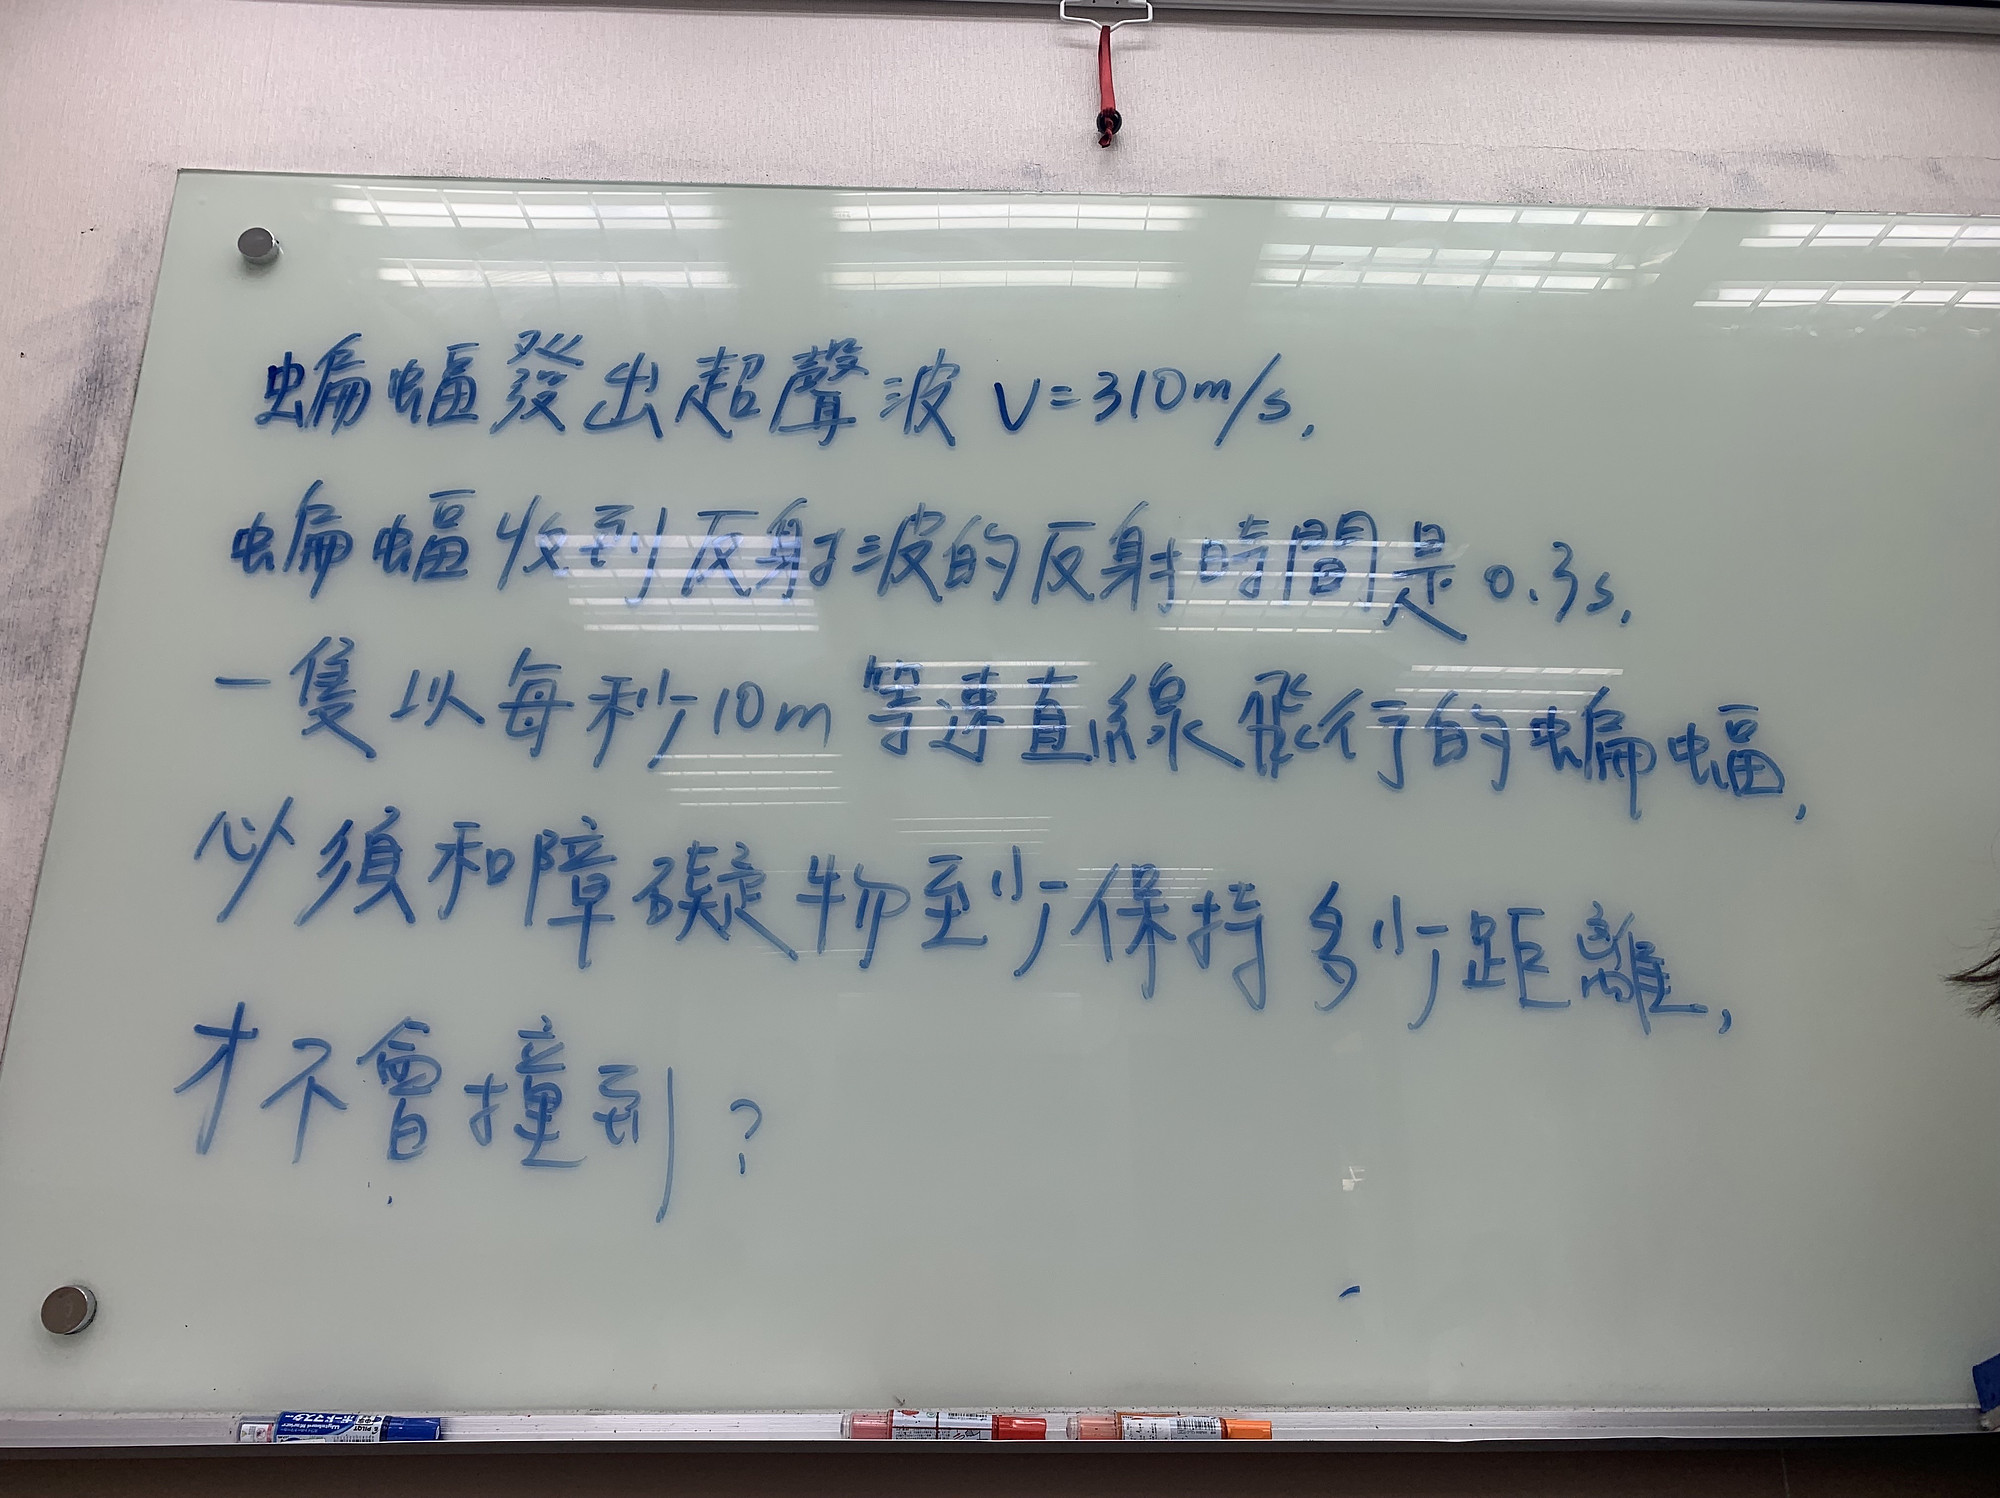 蝙蝠發出超聲波 V=310m/s,
蝙蝠收到反射波的反射時間是0.3s,
一隻以每秒10m等速直線飛行的蝙蝠,
必須和障礙物至少保持多少距離,
才不會撞到?
ボードマスター
PILOT